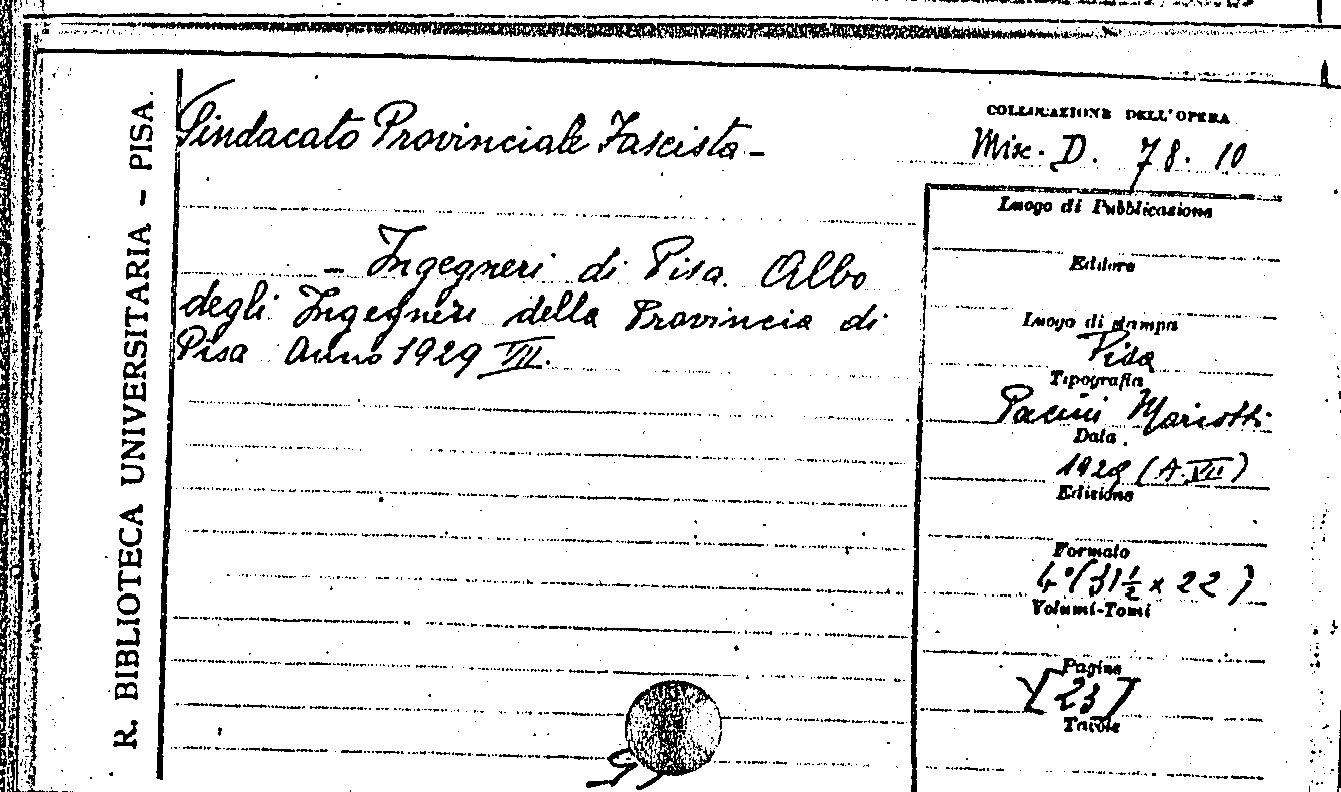 R. BIBLIOTECA UNIVERSITARIA - PISA.
Sindacato Provinciale Fascista -
- Ingegneri di Pisa. Albo
degli Ingegneri della Provincia di
Pisa Anno 1929 VII.
COLLOCAZIONE DELL'OPERA
Misc. D. 78. 10
Luogo di Pubblicazione
Editore
Luogo di stampa
Pisa
Tipografia
Pacini Mariotti
Data
1929 (A. VII)
Edizione
Formato
4° (31 1/2 x 22)
Volumi-Tomi
Pagine
[23]
Tavole